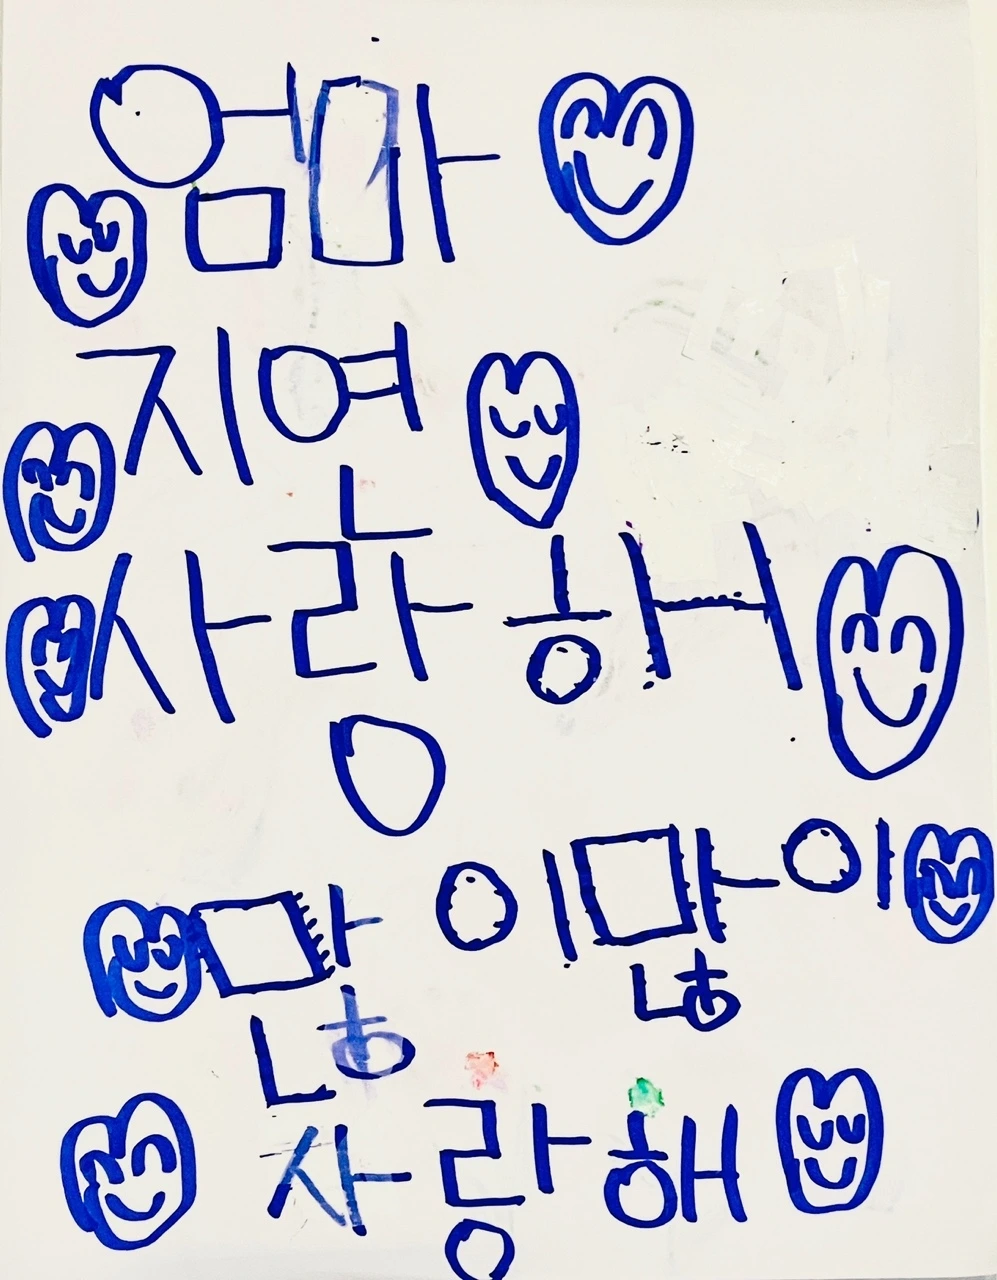 엄마
지여
사랑해
많이많이
사랑해